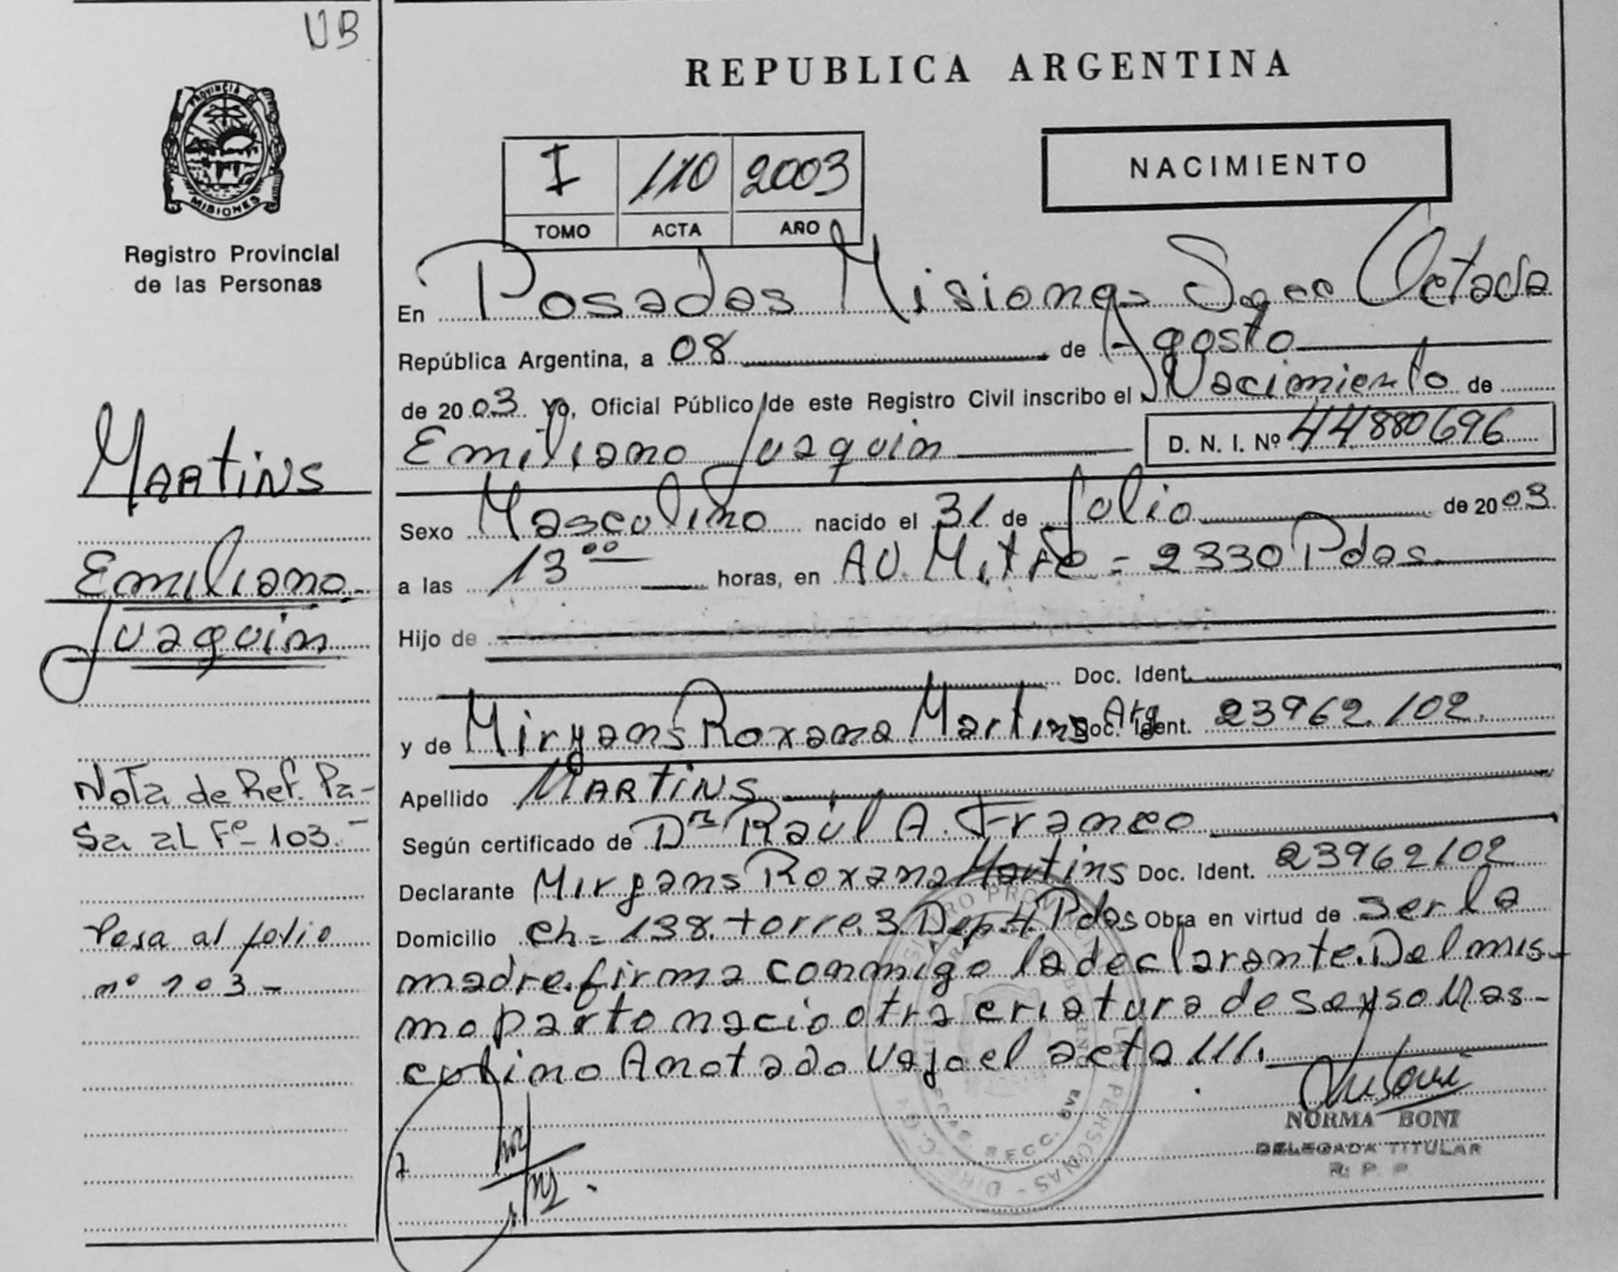 UB
REPUBLICA ARGENTINA
PROVINCIA DE
MISIONES
Registro Provincial
de las Personas
I 110 2003
TOMO ACTA AÑO
NACIMIENTO
En Posadas Misiones Secc Octada
República Argentina, a 08 de Agosto
de 2003 yo, Oficial Público de este Registro Civil inscribo el Nacimiento de
Emiliano Juaquin D. N. I. Nº 44880696
Sexo Mascolino nacido el 31 de Julio de 2003
a las 13 ºº horas, en AV. Mitre = 2330 Pdas.
Hijo de
Doc. Ident.
y de Miryans Roxana Martins Arg Doc. Ident. 23962.102.
Apellido MARTINS
Según certificado de Dr Raúl A. Franco
Declarante Miryans Roxana Martins Doc. Ident. 23962102
Domicilio ch = 138. torre. 3. Dep. 4. Pdas Obra en virtud de ser la
madre. firma conmigo la declarante. Del mis-
mo parto nacio otra criatura de sexso Mas-
culino Anotado vajo el acta 111.
MARTINS
Emiliano
Juaquin
Nota de Ref. Pa-
sa al Fº 103.-
Pasa al folio
nº 103-
NORMA BONI
DELEGADA TITULAR
R. P. P.
SECC. 8va